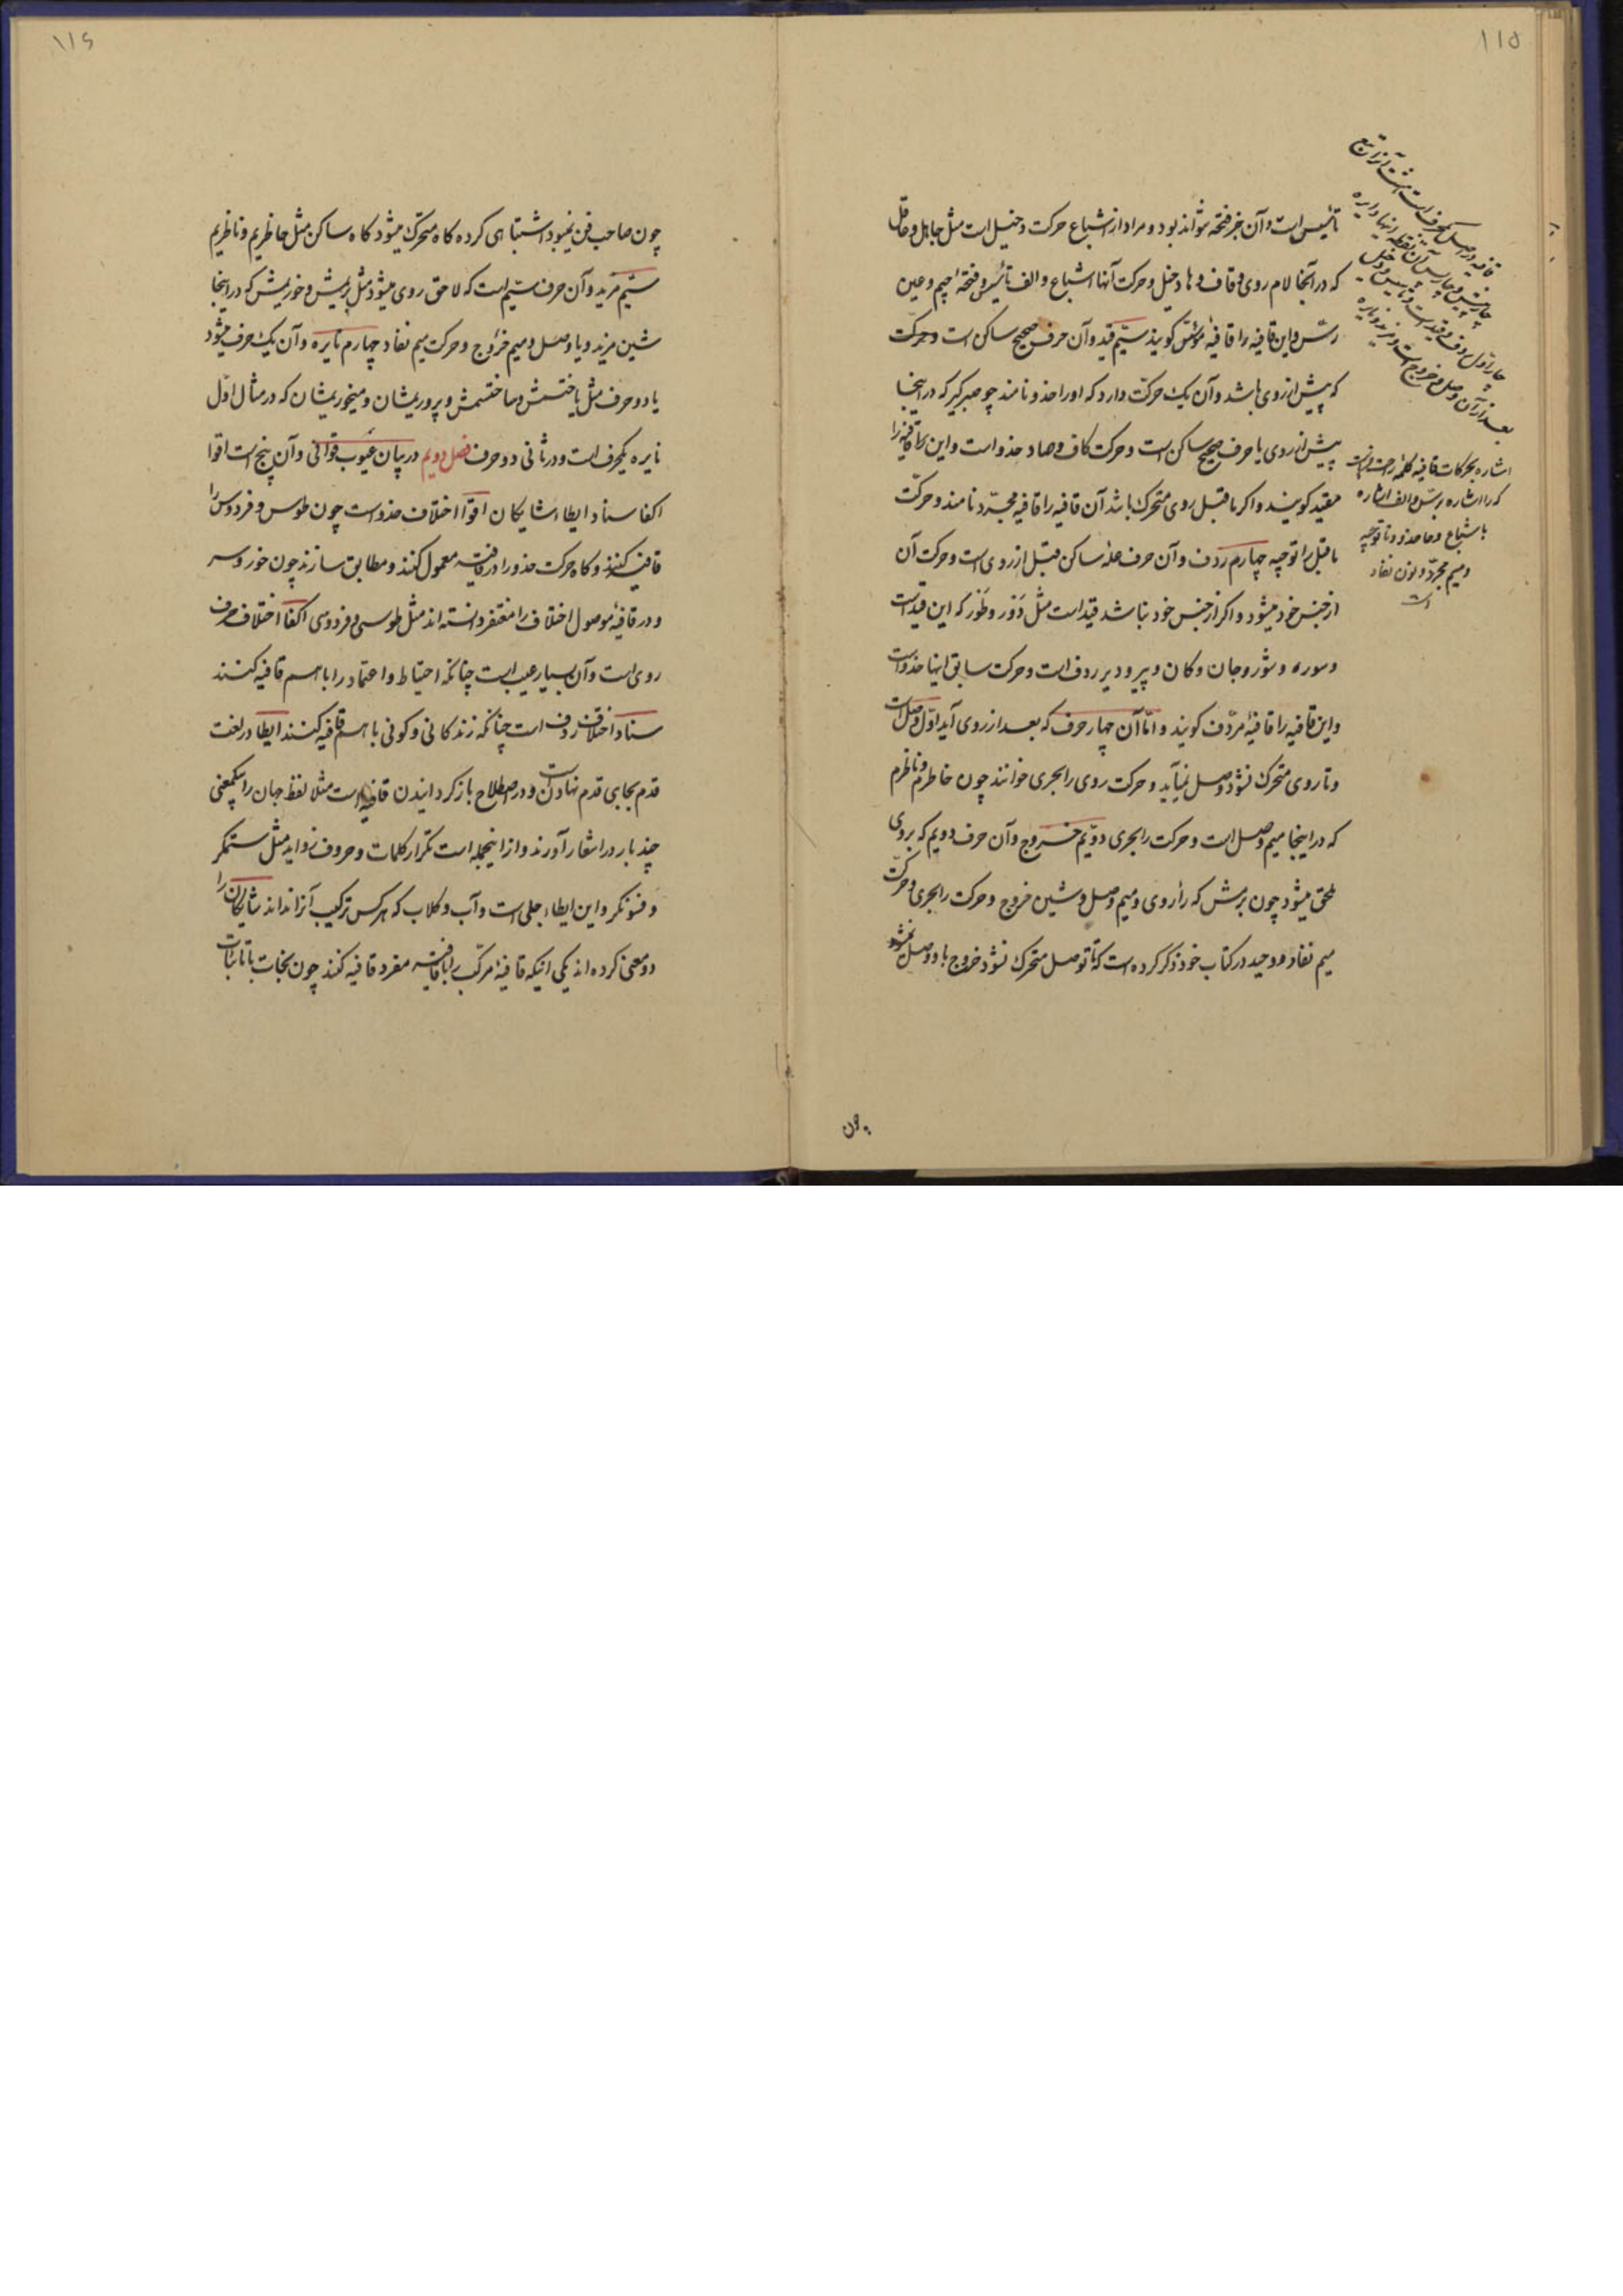 ۱۱۵
تأسیس است و آن جز فتحه نتواند بود و مراد از اشباع حرکت دخیل است مثل جاهل و عاقل
که در آنجا لام روی و قاف و ها دخیل و حرکت آنها اشباع و الف تأسیس و فتحهٔ جیم و عین
رسّ و این قافیه را قافیهٔ مؤسّس گویند سیّم قید و آن حرف صحیح ساکن است و حرکت
که پیش از روی باشد و آن یک حرکت دارد که او را حذو نامند چو صبر گیر که در اینجا
پیش از روی با حرف صحیح ساکن است و حرکت کاف و صاد حذو است و این را قافیه را
مقید گویند و اگر ماقبل روی متحرک باشد آن قافیه را قافیه مجرّد نامند و حرکت
ماقبل را توجیه چهارم ردف و آن حرف علهٔ ساکن قبل از روی است و حرکت آن
از جنس خود میشود و اگر از جنس خود نباشد قید است مثل دَور و طَور که این قید است
و سوره و شور و جان و کان و پیر و دیر ردف است و حرکت سابق اینها حذو است
و این قافیه را قافیهٔ مردّف گویند و امّا آن چهار حرف که بعد از روی آید اوّل وصل است
و تا روی متحرک نشود وصل نیاید و حرکت روی را مجری خوانند چون خاطرم و ناظرم
که در اینجا میم وصل است و حرکت را مجری دویّم خروج و آن حرف دویم که بروی
ملحق میشود چون برمش که را روی و میم وصل و شین خروج و حرکت را مجری و حرکت
میم نفاذ و وحید در کتاب خود ذکر کرده است که تا وصل متحرک نشود خروج باو وصل نمیشود
قافیه در اصل یکحرف است هشت آنرا تبع
چار پیش و چار پس آن نقطه اینها دایره
چار اوّل ردف و قید است و تاسیس و دخیل
بعد از آن وصل و خروج است و مزید و نایره
اشاره بحرکات قافیه کلمهٔ
که را اشاره برسّ و الف اشاره
باشباع و حا حذو و تا توجیه
و میم مجری و نون نفاذ
است
چون
۱۱۶
چون صاحب فن نمیبود اشتباهی کرده گاه متحرک میشود گاه ساکن مثل خاطریم و ناظریم
سیّم مزید و آن حرف سیّم است که لاحق روی میشود مثل بریمش و خوریمش که در اینجا
شین مزید و یا وصل و میم خروج و حرکت میم نفاذ چهارم نایره و آن یک حرف میشود
یا دو حرف مثل یاختستمش و ساختستمش و پروریمشان و میخوریمشان که در مثال اوّل
نایره یکحرف است و در ثانی دو حرف فصل دویم در بیان عیوب قوافی و آن پنج است اقوا
اکفا سناد ایطاء شایگان اقوا اختلاف حذو است چون طوس و فردوس را
قافیه کنند و گاه حرکت حذو را در قافیه معمول کنند و مطابق سازند چون خور و سر
و در قافیهٔ موصول اختلاف را مغتفر دانسته اند مثل طوسی و فردوسی اکفا اختلاف حرف
روی است و آن بسیار عیب است چنانکه احتیاط و اعتماد را با هم قافیه کنند
سناد اختلاف ردف است چنانکه زندگانی و کونی با هم قافیه کنند ایطا در لغت
قدم بجای قدم نهادن است و در اصطلاح باز گردانیدن قافیه است مثلا لفظ جهان را بیکمعنی
چند بار در اشعار آورند و از اینجمله است تکرار کلمات و حروف زواید مثل ستمگر
و فسونگر و این ایطاء جلی است و آب و گلاب که هر کس ترکیب آنرا نداند شایگان را
دو معنی کرده اند یکی اینکه قافیهٔ مرکّب را با قافیه مفرد قافیه کنند چون نجات با تا نبات